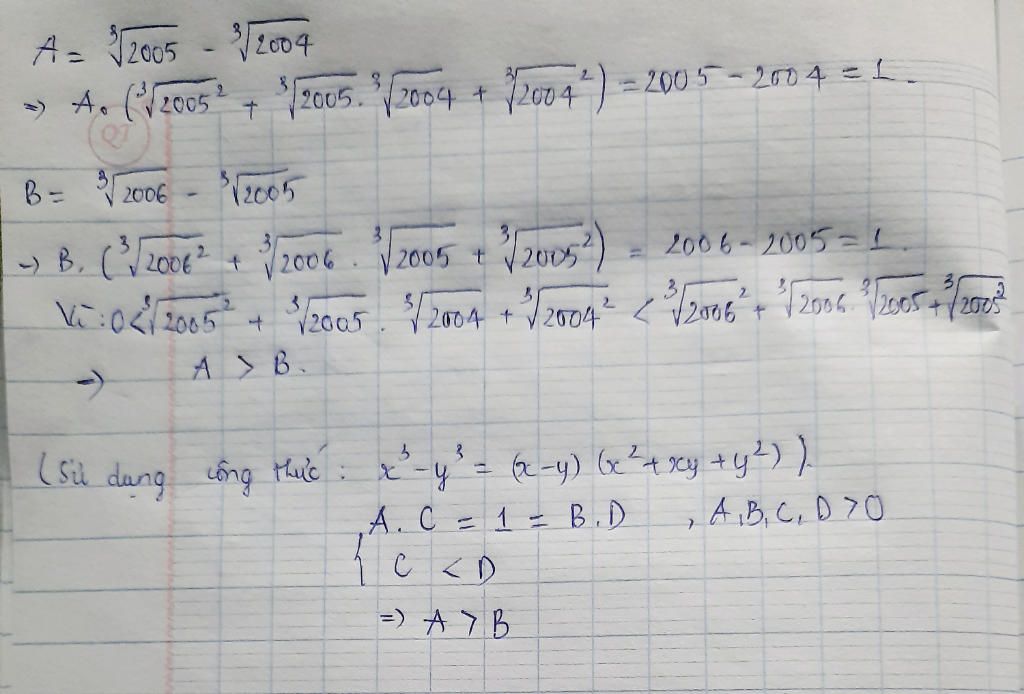 A = ∛2005 - ∛2004
=> A. (∛2005² + ∛2005 . ∛2004 + ∛2004²) = 2005 - 2004 = 1.
B = ∛2006 - ∛2005
-> B. (∛2006² + ∛2006 . ∛2005 + ∛2005²) = 2006 - 2005 = 1.
Vì: 0 < ∛2005² + ∛2005 . ∛2004 + ∛2004² < ∛2006² + ∛2006 . ∛2005 + ∛2005²
=> A > B.
(Sử dụng công thức: x³ - y³ = (x-y) (x² + xy + y²)).
{ A. C = 1 = B. D , A, B, C, D > 0
C < D
=> A > B